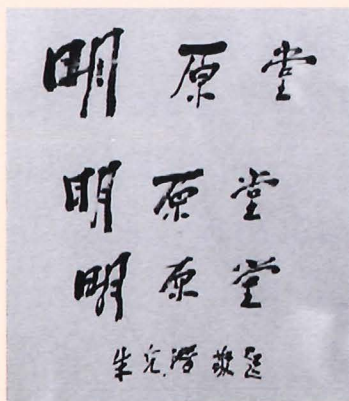 明原堂
明原堂
明原堂
朱光潜敬题